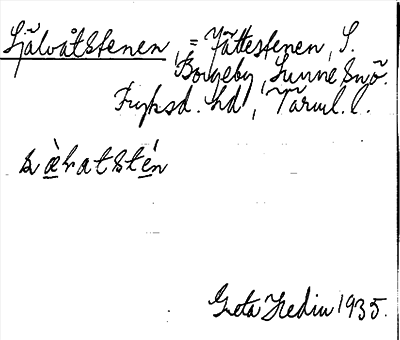 Självåtstenen, = Jättestenen, S.
Borgeby, Sunne snö.
Fryksd. hd, Värml. l.
sàvatstén
Greta Hedin 1935.